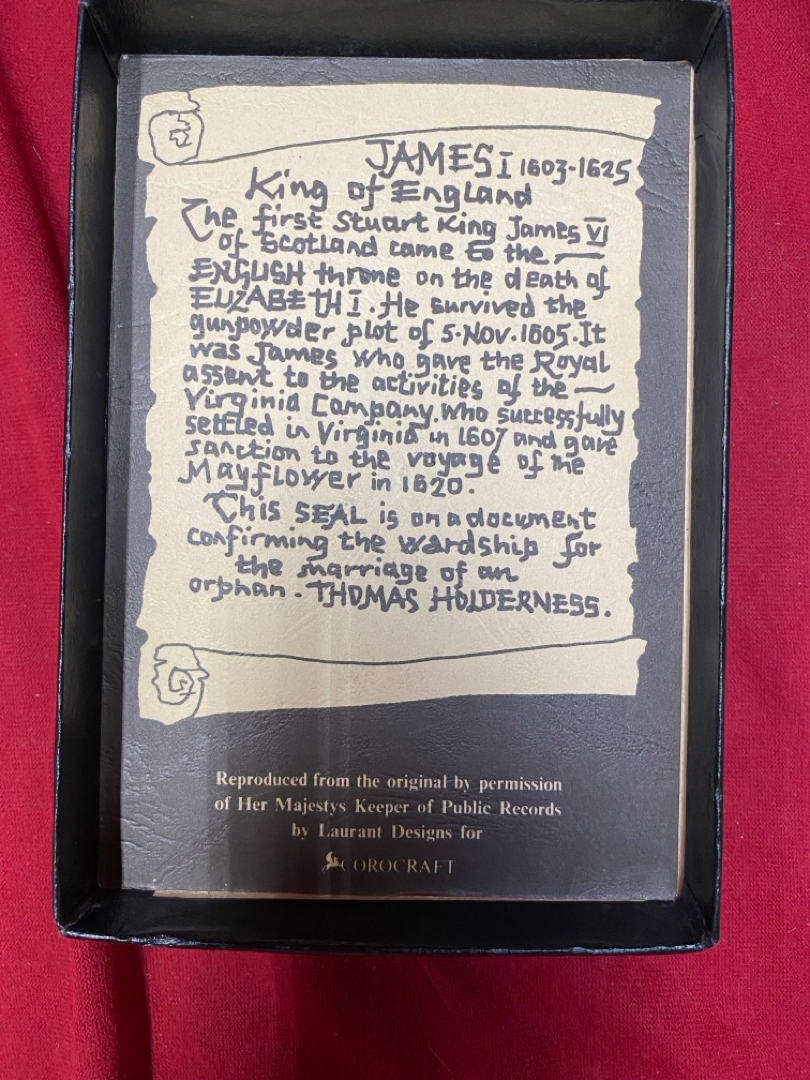 JAMES I 1603-1625
King of England
The first Stuart King James VI
of Scotland came to the —
ENGLISH throne on the death of
ELIZABETH I. He survived the
gunpowder plot of 5.Nov.1605. It
was James who gave the Royal
assent to the activities of the —
Virginia Company. who successfully
settled in Virginia in 1607 and gave
sanction to the voyage of the
Mayflower in 1620.
This SEAL is on a document
confirming the wardship for
the marriage of an
orphan - THOMAS HOLDERNESS.
Reproduced from the original by permission
of Her Majestys Keeper of Public Records
by Laurant Designs for
COROCRAFT